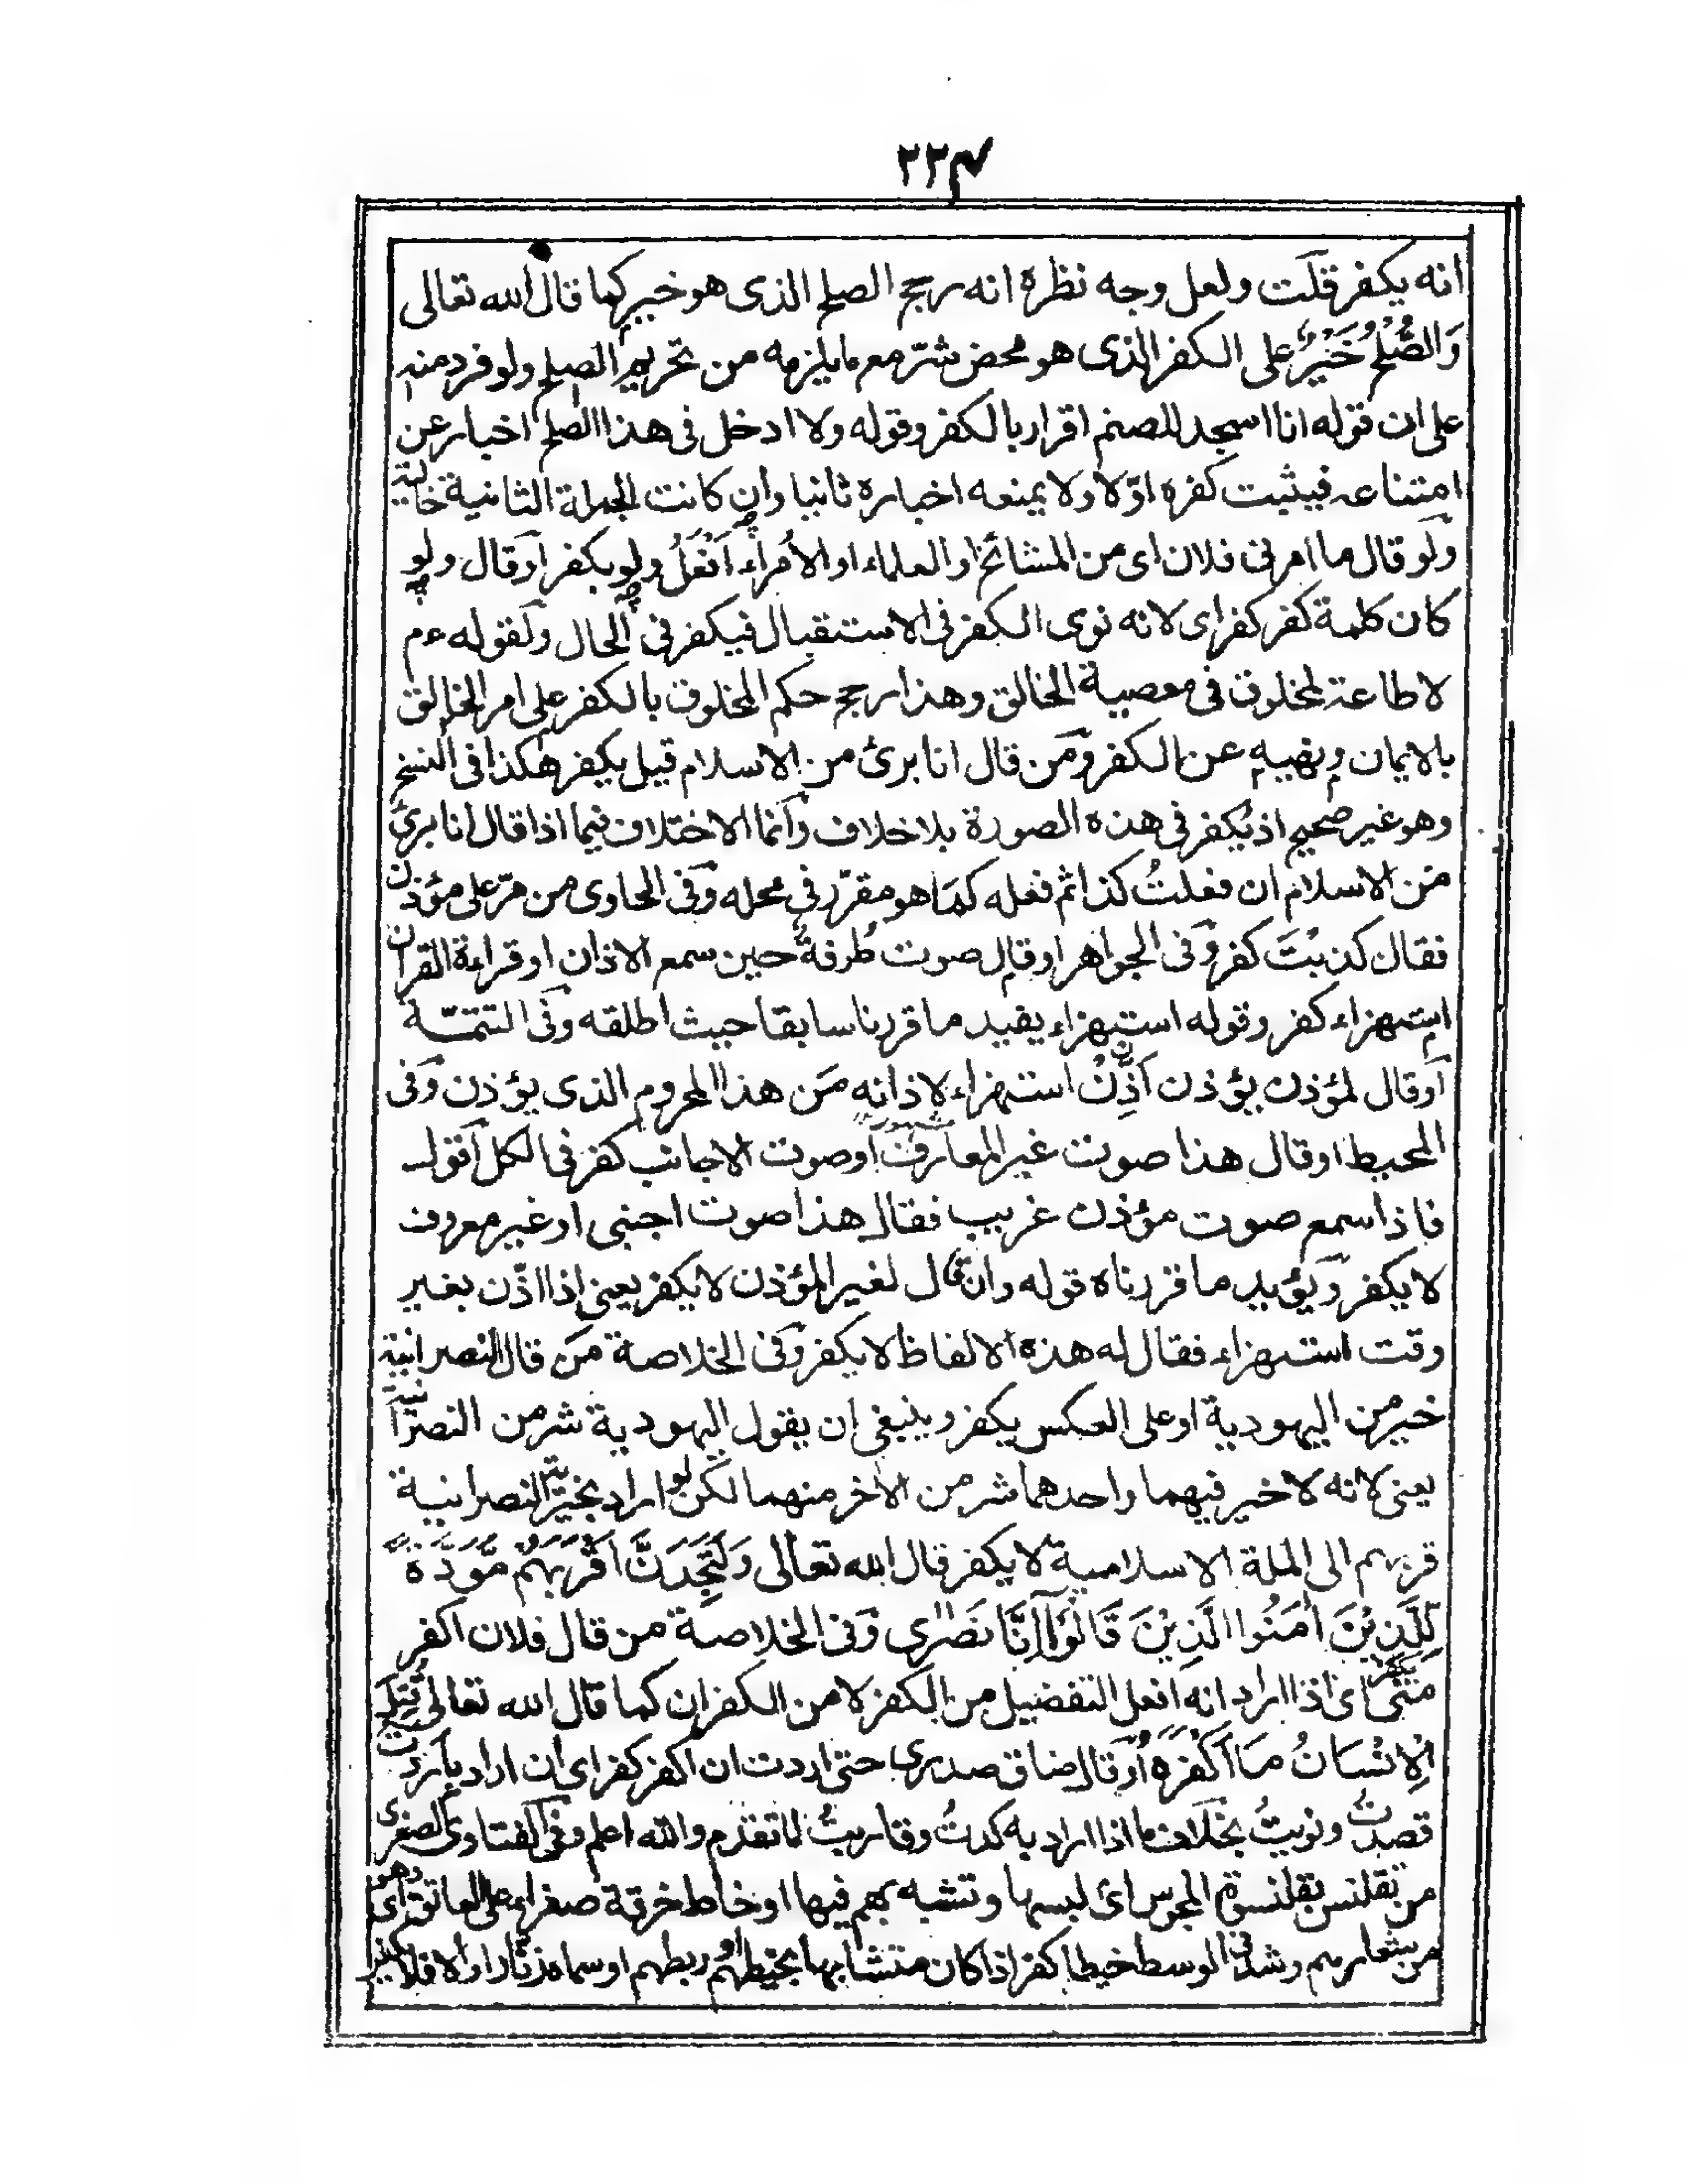 ٢٢٤
انه يكفر قلت ولعل وجه نظره انه رجح الصلح الذى هو خير كما قال الله تعالى
وَالصُّلْحُ خَيْرٌ على الكفر الذى هو محض شرّ مع ما يلزمه من تحريم الصلح ولو فرد منه
على ان قوله انا اسجد للصنم اقرار بالكفر وقوله ولا ادخل فى هذا الصلح اخبار عن
امتناعه فيثبت كفره اوّلا ولا يمنعه اخباره ثانيا وان كانت الجملة الثانية حالية
ولو قال ما امرنى فلان اى من المشائخ او العلماء او الأمراء اَفْعَلُ ولو بكفر اوقال ولو
كان كلمة كفر كفر اى لانه نوى الكفر فى الاستقبال فيكفر فى الحال ولقوله عم
لا طاعة لمخلوق فى معصية الخالق وهذا رجح حكم المخلوق بالكفر على امر الخالق
بالايمان ونهيه عن الكفر ومن قال انا برئ من الاسلام قيل يكفر هكذا فى النسخ
وهو غير صحيح اذ يكفر فى هذه الصورة بلا خلاف وانما الاختلاف فيما اذا قال انا برئ
من الاسلام ان فعلتُ كذا ثم فعله كما هو مقرّر فى محله وفى الحاوى من مرّ على مؤذن
فقال كذبْتَ كفر وفى الجواهر اوقال صوت طُرفة حين سمع الاذان او قراءة القران
استهزاء كفر وقوله استهزاء يفيد ما قررنا سابقا حيث اطلقه وفى التتمّة
اوقال لمؤذن يؤذن اَذِّنْ استهزاء لاذانه مَن هذا المحروم الذى يؤذن وفى
المحيط اوقال هذا صوت غير المعارف اوصوت الاجانب كفر فى الكل اقول
فاذا سمع صوت مؤذن غريب فقال هذا صوت اجنبى او غير معروف
لا يكفر ويؤيد ما قررناه قوله وان قال لغير المؤذن لا يكفر يعنى اذا اذّن بغير
وقت استهزاء فقال له هذه الالفاظ لا يكفر وفى الخلاصة من قال النصرانية
خير من اليهودية او على العكس يكفر وينبغى ان يقول اليهودية شر من النصرانية
يعنى لانه لا خير فيهما واحدهما شر من الأخر منهما لكن لو اراد بخيرية النصرانية
قربهم الى الملة الاسلامية لا يكفر قال الله تعالى وَلَتَجِدَنَّ اَقْرَبَهُمْ مَّوَدَّةً
لِّلَّذِيْنَ اٰمَنُوا الَّذِيْنَ قَالُوْآ اِنَّا نَصٰرٰى وفى الخلاصة من قال فلان اكفر
منّى يكفر اى اذا اراد انه افعل التفضيل من الكفر لا من الكفران كما قال الله تعالى قُتِلَ
الْاِنْسَانُ مَا اَكْفَرَهُ اوقال ضاق صدرى حتى اردت ان اكفر كفر اى ان اراد باَردت
قصدتُ ونويتُ بخلاف ما اذا اراد به كدتُ وقاربتُ لما تقدم والله اعلم وفى الفتاوى الصغرى
من تقلنس بقلنسوة المجوس اى لبسها وتشبه بهم فيها او خاط خرقة صفراء على العاتق اى وهو
من شعارهم وشد فى الوسط خيطا كفر اذا كان متشابها بخيطهم او ربطهم اوسماه زنّارا والا فلا يكفر